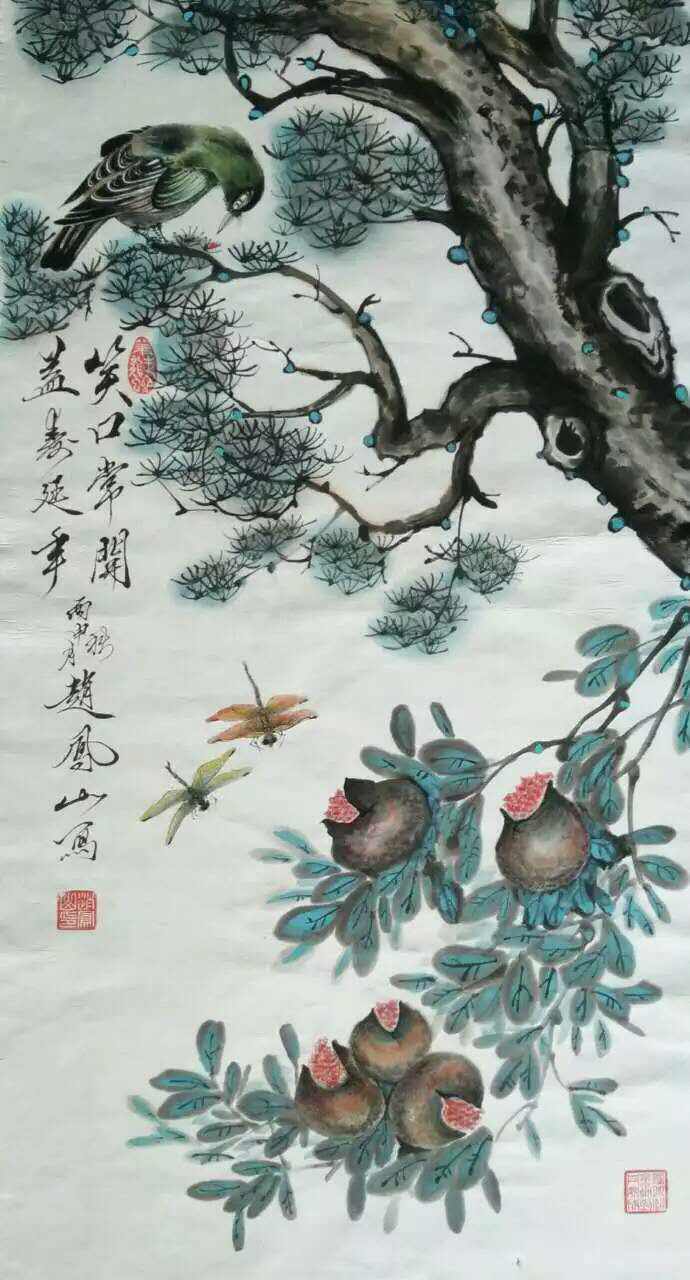 笑口常開
益壽延年
丙申秋月趙鳳山寫